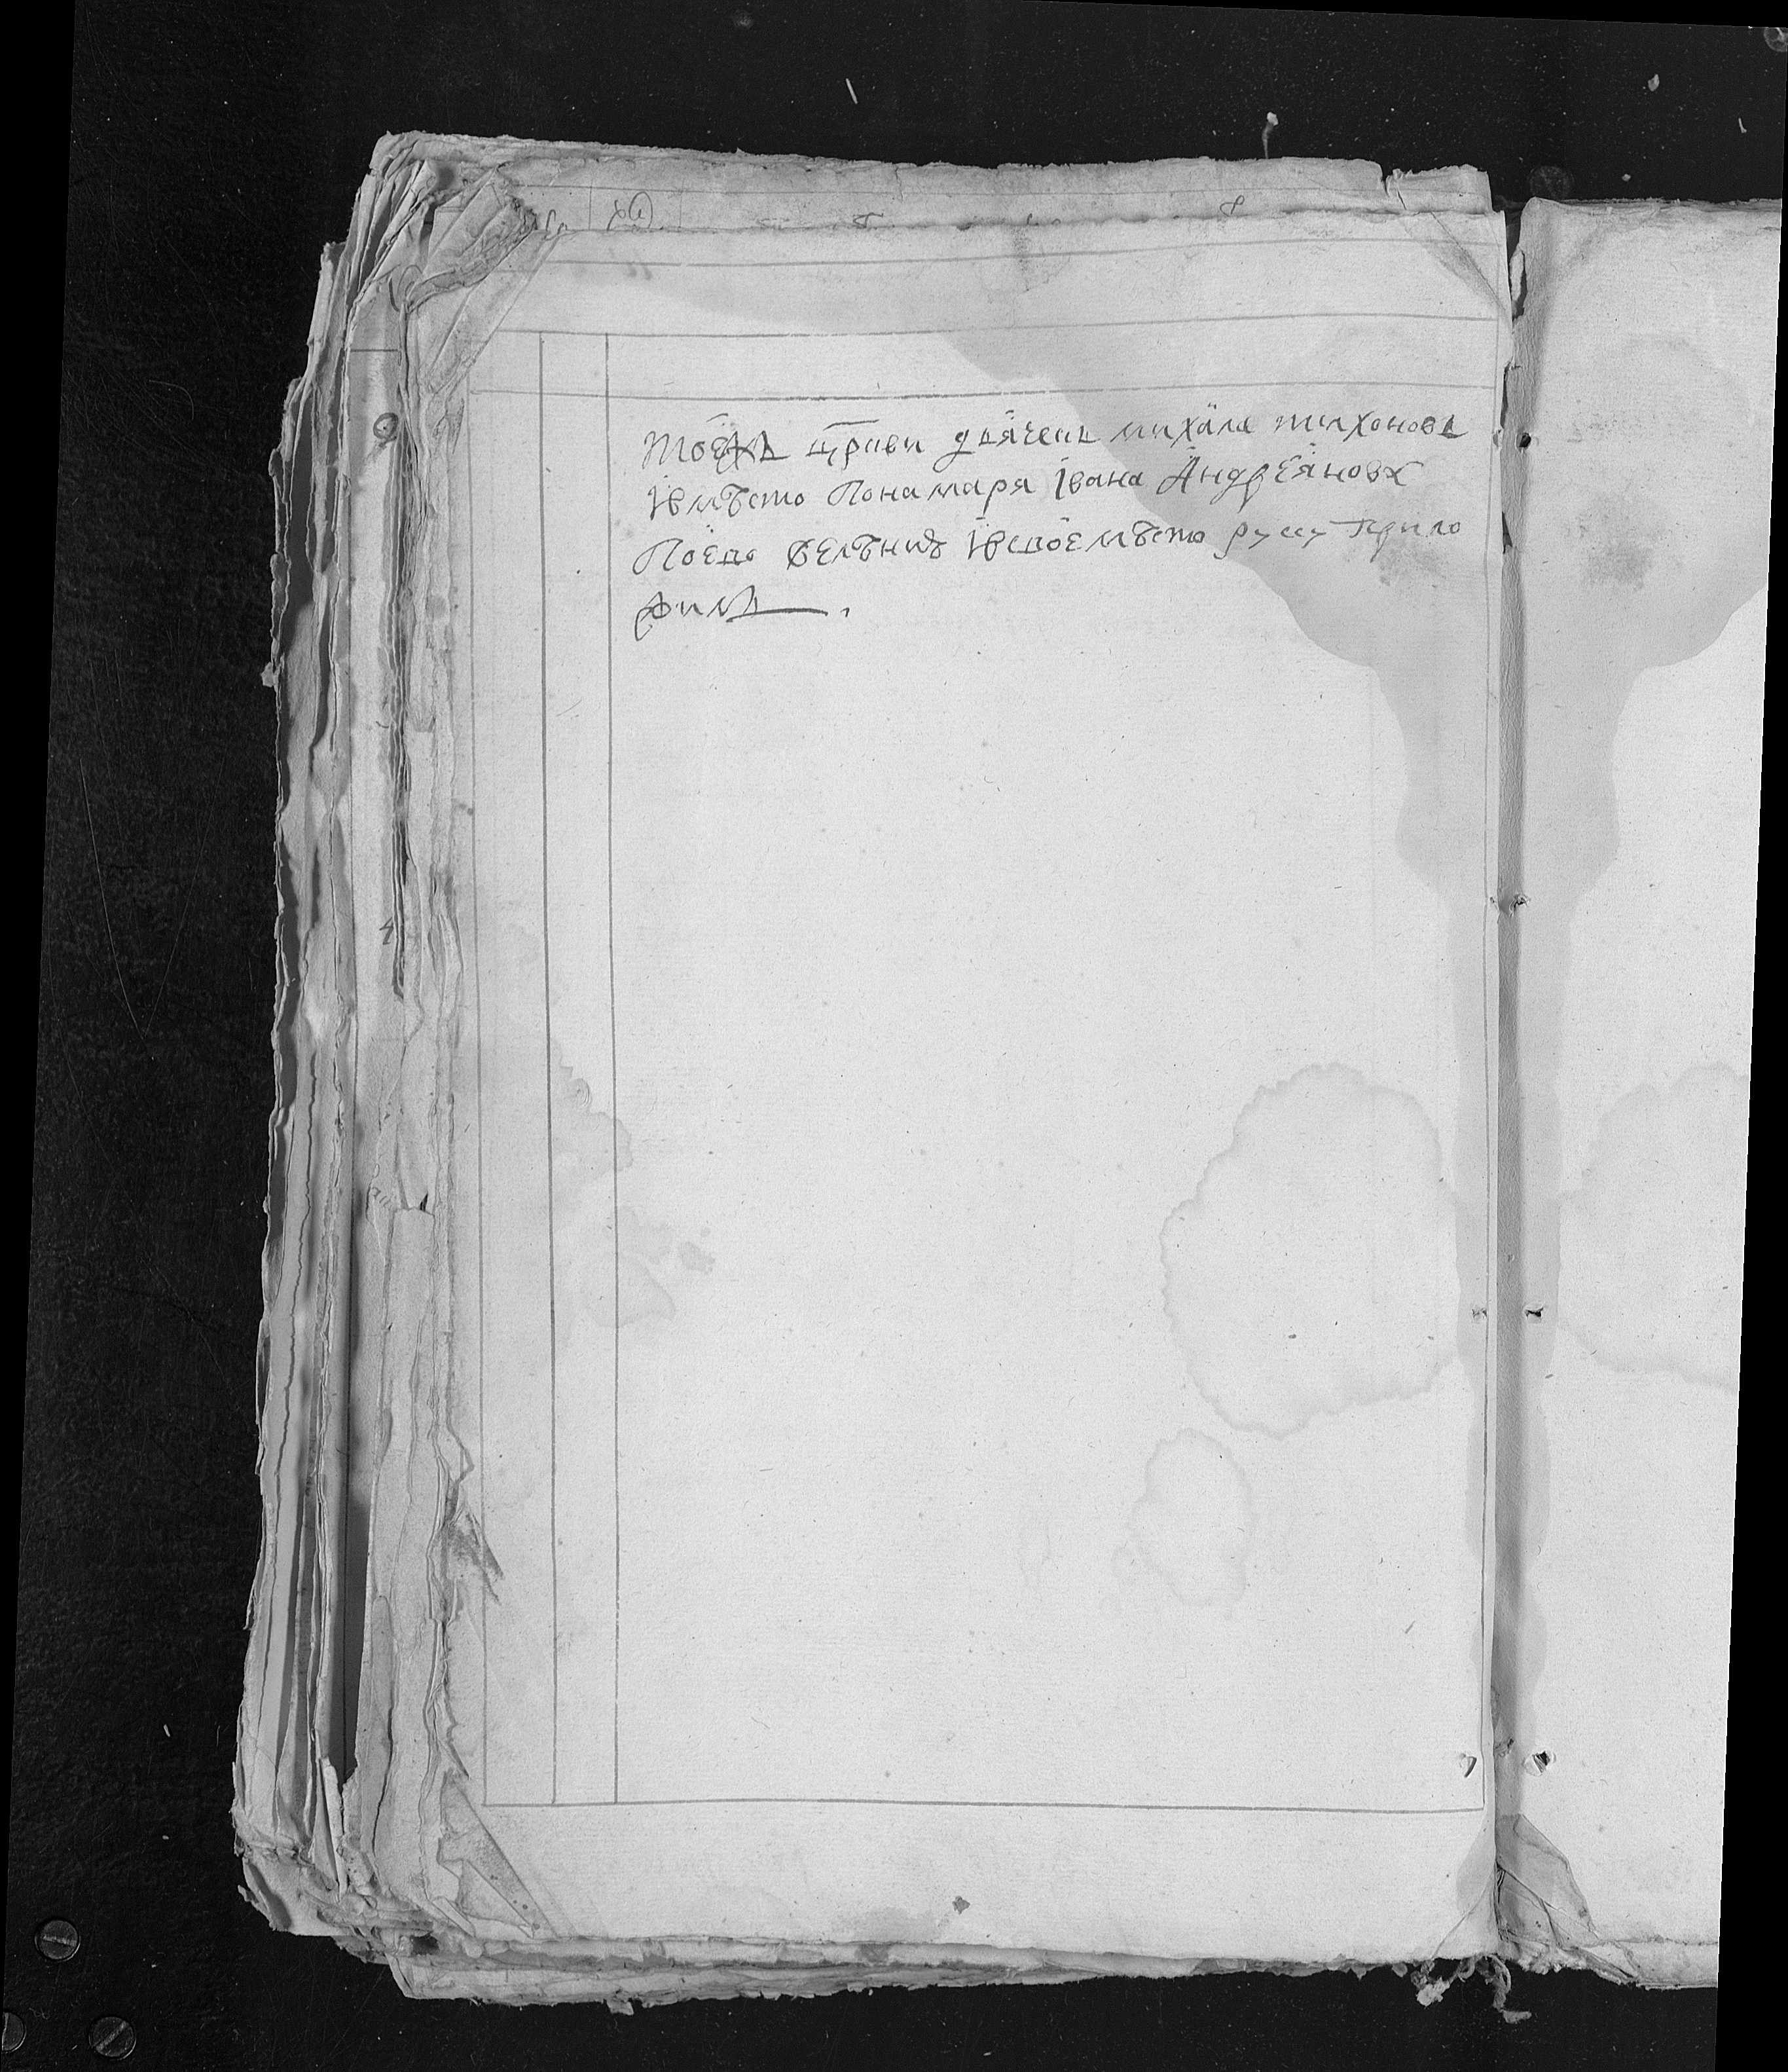 тоежъ цркви дьячекъ михаила тихоновъ
Iвмѣсто Понамаря Iвана Андреянова
Поево велѣнию Iвсвое мѣсто руку Прило
жилъ.